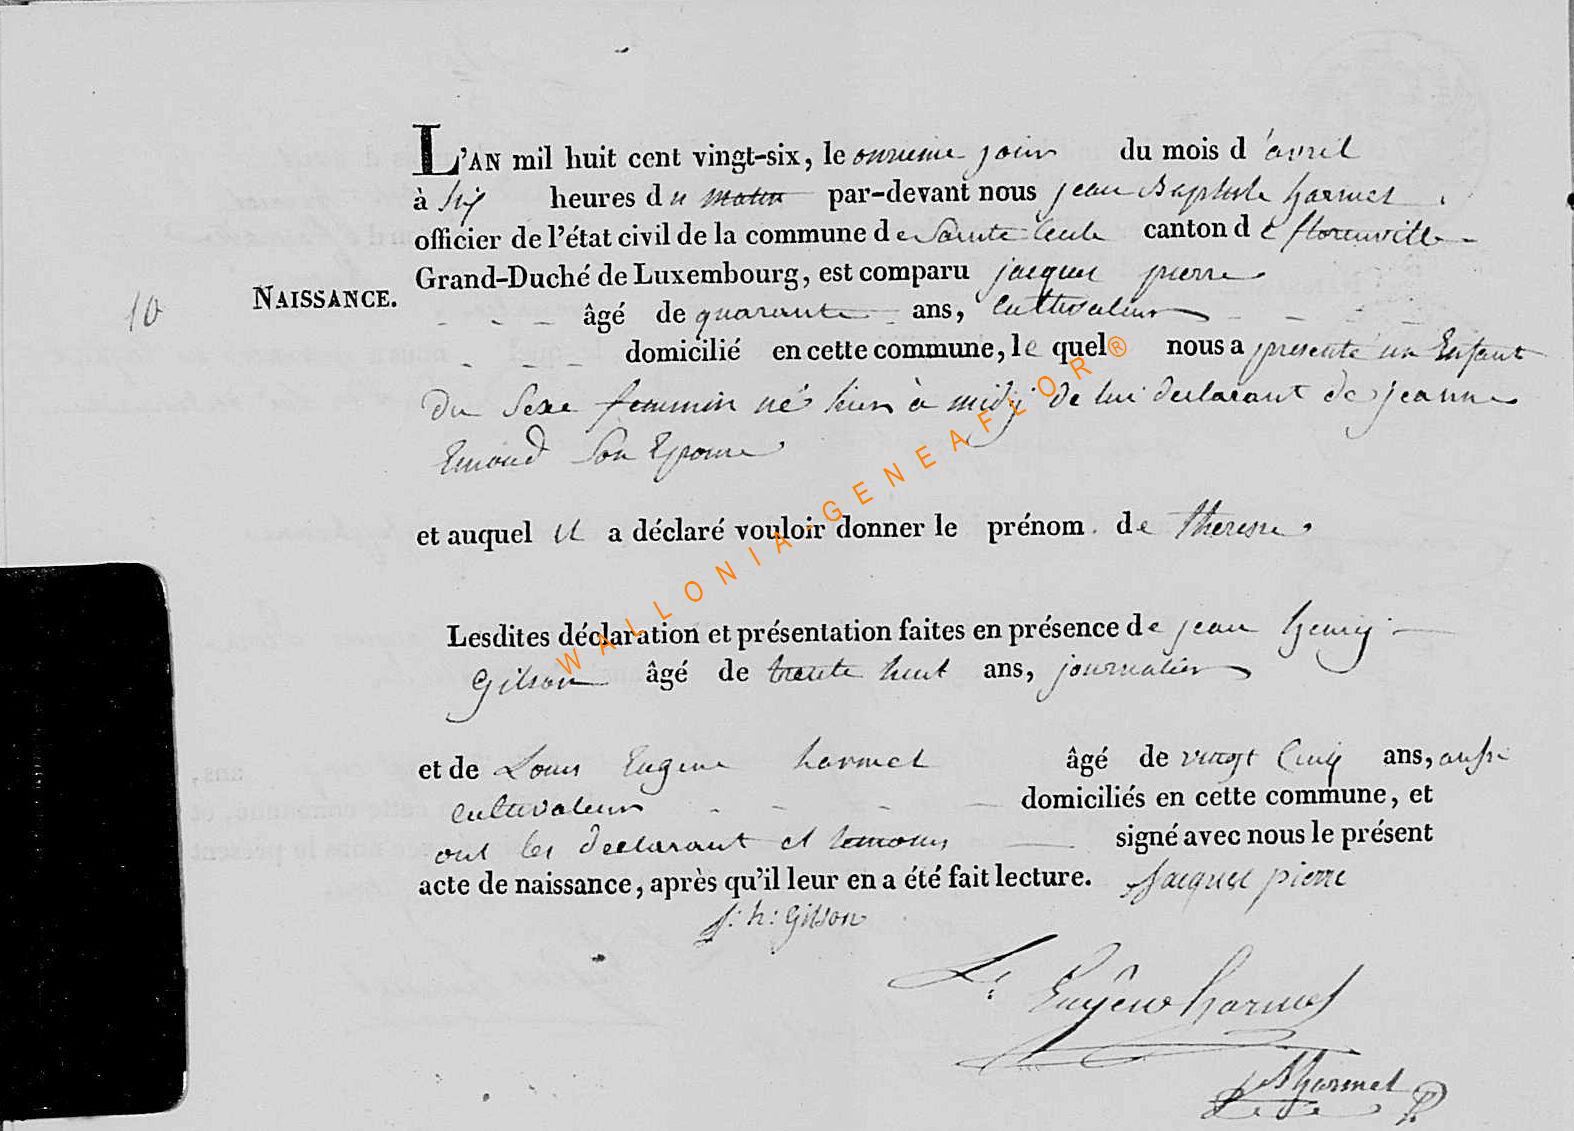 L'AN mil huit cent vingt-six, le onzieme jour du mois d'avril
à six heures du matin par-devant nous jean Baptiste harmel
officier de l'état civil de la commune de Sainte Cecile canton de florenville
Grand-Duché de Luxembourg, est comparu jacques pierre
10
NAISSANCE.
âgé de quarante ans, Cultivateur
domicilié en cette commune, le quel nous a presenté un Enfant
du Sexe feminin né hier à midj de lui declarant de jeanne
Emond Son Epouse
et auquel il a déclaré vouloir donner le prénom de therese
Lesdites déclaration et présentation faites en présence de jean henrij
Gilson âgé de trente huit ans, journalier
et de Louis Eugene harmel âgé de vingt Cinq ans, aussi
Cultivateur domiciliés en cette commune, et
ont les declarant et temoins signé avec nous le présent
acte de naissance, après qu'il leur en a été fait lecture. Jacques pierre
j: h: Gilson
L: Eugêne harmel
harmel
WALLONIA-GENEAFLOR®